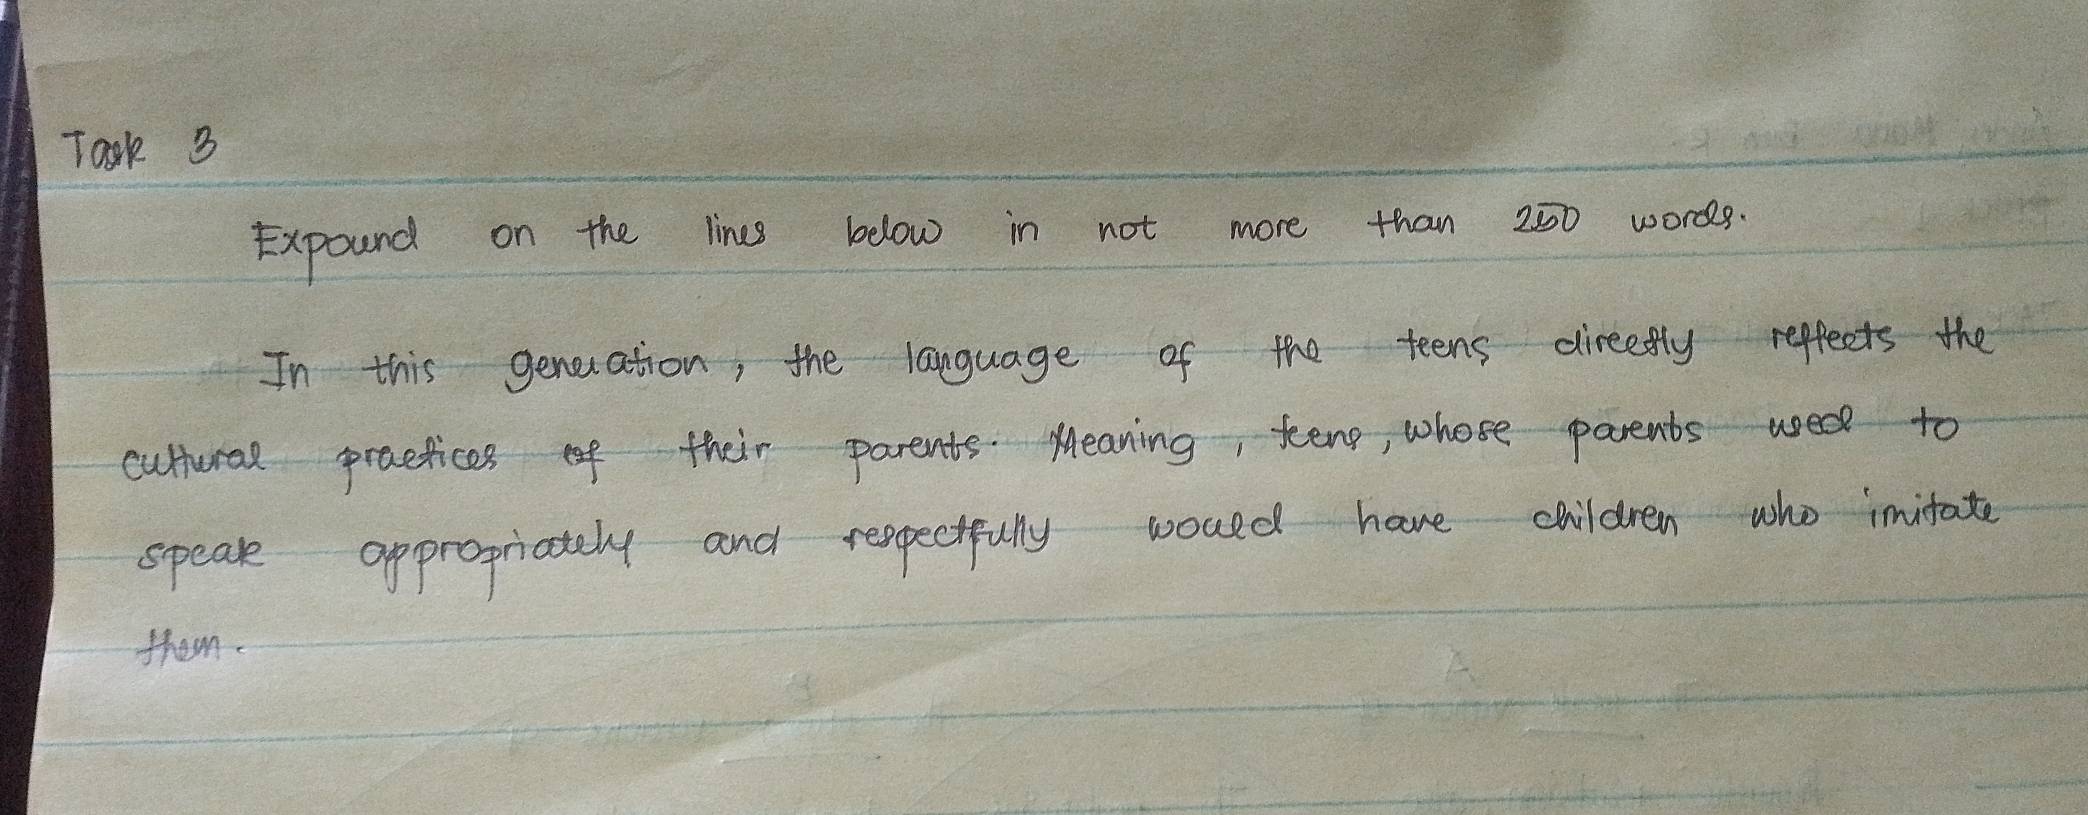 Task 3
Expound on the lines below in not more than 250 words.
In this generation, the language of the teens directly reflects the
cultural practices of their parents. Meaning, teens, whose parents used to
speak appropriately and respectfully would have children who imitate
them.